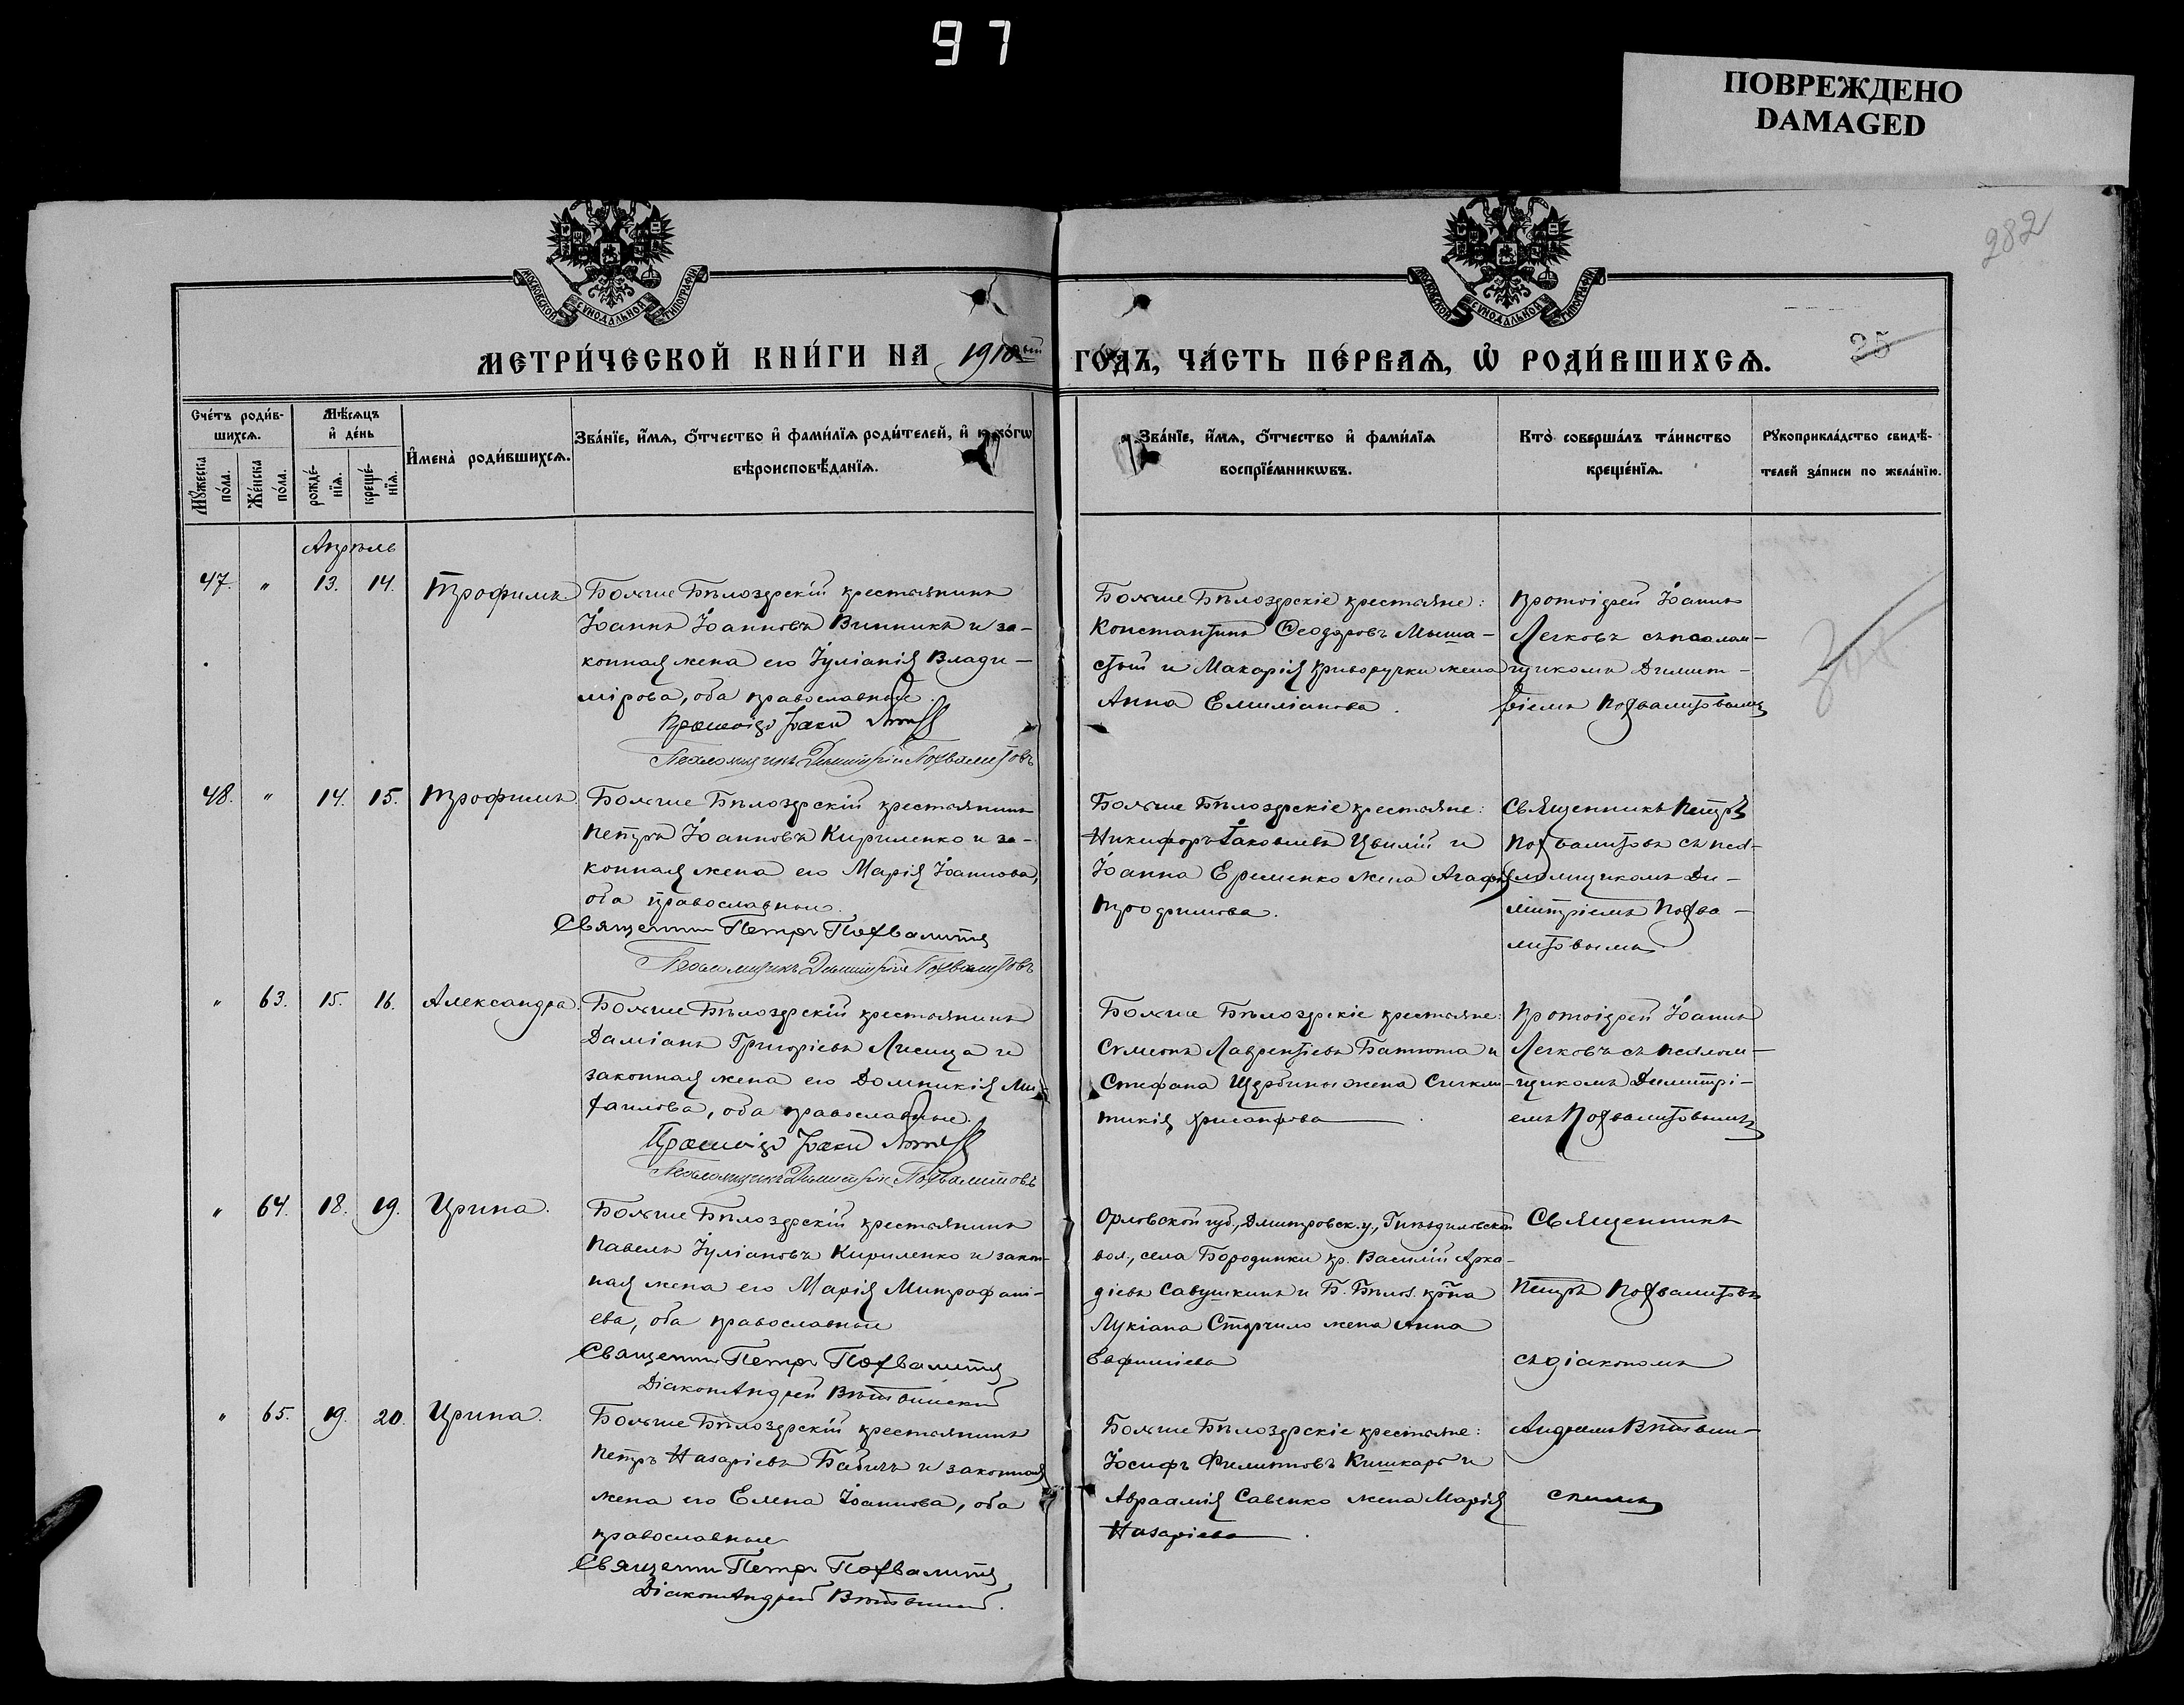 97
ПОВРЕЖДЕНО
DAMAGED
282
МОСКОВСКОЙ СѴНОДАЛЬНОЙ ТИПОГРАФІИ
МОСКОВСКОЙ СѴНОДАЛЬНОЙ ТИПОГРАФІИ
МЕТРИ́ЧЕСКОЙ КНИ́ГИ НА 1910ый ГО́ДЪ, ЧА́СТЬ ПЕ́РВАѦ, Ѽ РОДИ́ВШИХСѦ.
25
Сче́тъ роди́в-
шихсѧ.
Мꙋ́жеска по́ла.
Же́нска по́ла.
Мѣ́сѧцъ
и҆ де́нь
рожде́-
нїѧ.
креще́-
нїѧ.
И҆мена̀ роди́вшихсѧ.
Зва́нїе, и҆́мѧ, ѻ҆́тчество и҆ фами́лїѧ роди́телей, и҆ и҆ ко́гѡ
вѣроисповѣ́данїѧ.
Зва́нїе, и҆́мѧ, ѻ҆́тчество и҆ фами́лїѧ
воспрїе́мникѡвъ.
Кто̀ соверша́лъ та́инство
креще́нїѧ.
Рꙋкоприкла́дство свидѣ́-
телей за́писи по жела́нїю.
Апрѣль
47. " 13. 14. Трофимъ
Больше Бѣлозерскій крестьянинъ
Іоаннъ Іоанновъ Винникъ и за-
конная жена его Іуліанія Влади-
мірова, оба православные.
Протоіер Іоанн
Псаломщикъ Димитрій Похвалитовъ
Больше Бѣлозерскіе крестьяне:
Константинъ Ѳеодоровъ Мыша-
стый и Макарія Криворучки жена
Анна Емиліанова.
Протоіерей Іоаннъ
Легковъ съ псалом-
щикомъ Димит-
ріемъ Похвалитовымъ
48. " 14. 15. Трофимъ.
Больше Бѣлозерскій крестьянинъ
Петръ Іоанновъ Кириленко и за-
конная жена его Марія Іоаннова,
оба православные.
Священник Петр Похвалитов
Псаломщикъ Димитрій Похвалитовъ
Больше Бѣлозерскіе крестьяне:
Никифоръ Іаковлевъ Цвилій и
Іоанна Еременко жена Агафія
Трофимова.
Священникъ Петръ
Похвалитовъ съ пса-
ломщикомъ Ди-
митріемъ Похва-
литовымъ
" 63. 15. 16. Александра.
Больше Бѣлозерскій крестьянинъ
Даміанъ Григоріевъ Лисица и
законная жена его Домникія Ми-
хаилова, оба православные.
Протоіер Іоанн
Псаломщикъ Димитрій Похвалитовъ
Больше Бѣлозерскіе крестьяне:
Сѵмеонъ Лаврентіевъ Батюта и
Стефана Щербины жена Сигкли-
тикія Хрисанфова
Протоіерей Іоаннъ
Легковъ съ псалом-
щикомъ Димитрі-
емъ Похвалитовымъ
" 64. 18. 19. Ирина.
Больше Бѣлозерскій крестьянинъ
Павелъ Іуліановъ Кириленко и закон-
ная жена его Марія Митрофані-
ева, оба православные
Священник Петр Похвалитов
Діаконъ Андрей Вѣтвинскій
Орловской губ., Дмитровск. у., Гнѣздиловской
вол., села Бородинки кр. Василій Арка-
діевъ Савушкинъ и Б. Бѣлоз. кр-на
Лукіана Сторчило жена Анна
Евфиміева
Священникъ
Петръ Похвалитовъ
съ діакономъ
" 65. 19. 20. Ирина.
Больше Бѣлозерскій крестьянинъ
Петръ Назаріевъ Бабичъ и законная
жена его Елена Іоаннова, оба
православные
Священник Петр Похвалитов
Діаконъ Андрей Вѣтвинскій.
Больше Бѣлозерскіе крестьяне:
Іосифъ Филиповъ Кишкарь и
Авраамія Савенко жена Марія
Назаріева.
Андреемъ Вѣтвин-
скимъ